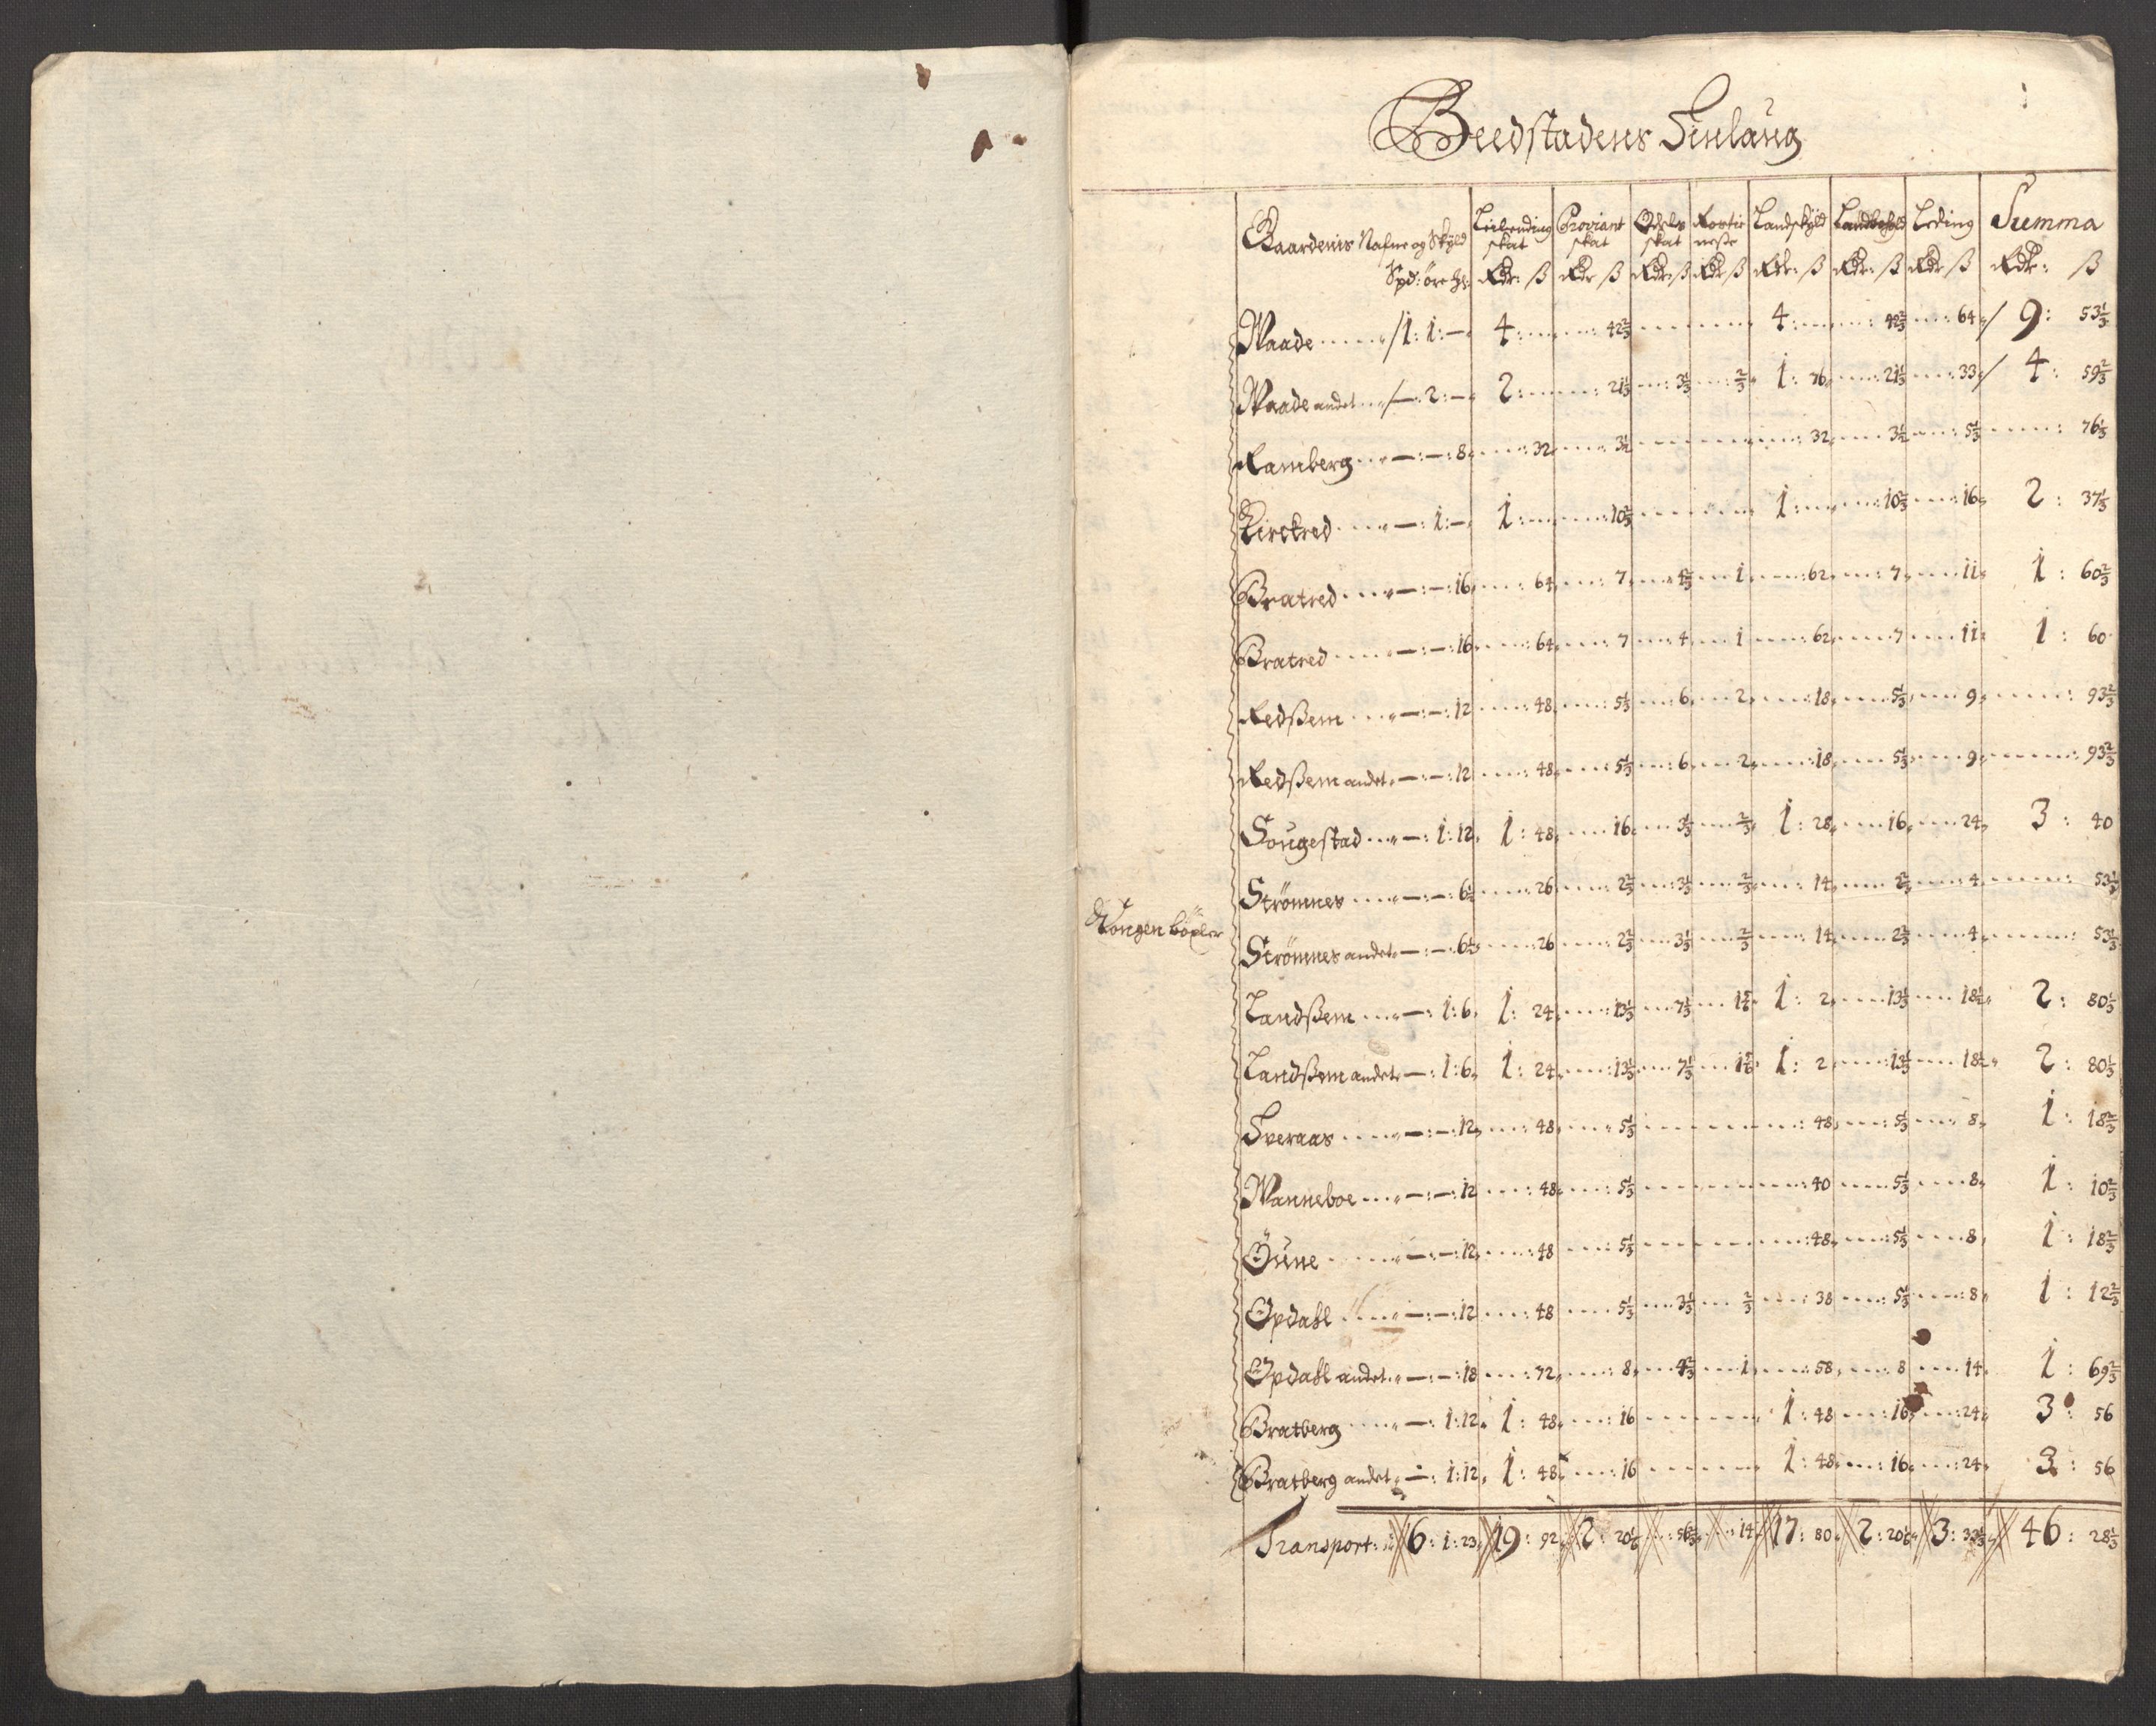 Beedstadens Tinlaug
Gaardenis Nafne og Skyld Leilending skat Proviant skat Odels skat Rostie neste Landskyld Landbohold Leding Summa
Spd: öre gr: Rdr: ß Rdr ß Rdr: ß Rdr ß Rdr: ß Rdr: ß Rdr ß Rdr: ß
Waade /1: 1: — 4: 42⅔ 4: 42⅔ 64 / 9: 53⅓
Waade andet /—: 2: — 2: 21⅓ 3⅓ ⅔ 1: 76 21⅓ 33 / 4: 59⅔
Ramberg —:—: 8 32 3½ 32 3½ 5⅓ 76⅓
Kirckred —: 1: — 1: 10⅔ 1: 10⅔ 16 2: 37⅓
Bratred —:—: 16 64 7 4⅔ 1 62 7 11 1: 60⅔
Bratred —:—: 16 64 7 4 1 62 7 11 1: 60
Redßem —:—: 12 48 5⅓ 6 2 18 5⅓ 9 93⅔
Redßem andet —:—: 12 48 5⅓ 6 2 18 5⅓ 9 93⅔
Sougestad —: 1: 12 1: 48 16 3⅓ ⅔ 1: 28 16 24 3: 40
Strömnes —:—: 6½ 26 2⅔ 3⅓ ⅔ 14 2⅔ 4 53⅓
Kongen böxler
Strömnes andet —:—: 6½ 26 2⅔ 3⅓ ⅔ 14 2⅔ 4 53⅓
Landßem —: 1: 6 1: 24 13⅓ 7⅓ 1⅚ 1: 2 13⅓ 18½ 2: 80⅓
Landßem andet —: 1: 6 1: 24 13⅓ 7⅓ 1⅚ 1: 2 13⅓ 18½ 2: 80⅓
Sveraas —:—: 12 48 5⅓ 48 5⅓ 8 1: 18⅔
Wanneboe —:—: 12 48 5⅓ 40 5⅓ 8 1: 10⅔
Öune —:—: 12 48 5⅓ 48 5⅓ 8 1: 18⅔
Opdahl —:—: 12 48 5⅓ 3⅓ ⅔ 38 5⅓ 8 1: 12⅔
Opdahl andet —:—: 18 72 8 4⅔ 1 58 8 14 1: 69⅔
Bratberg —: 1: 12 1: 48 16 1: 48 16 24 3: 56
Bratberg andet —: 1: 12 1: 48 16 1: 48 16 24 3: 56
Transport: 16: 1: 23 19: 92 2: 20⅙ 56⅔ 14 17: 80 2: 20⅙ 3: 33⅓ 46: 28⅓